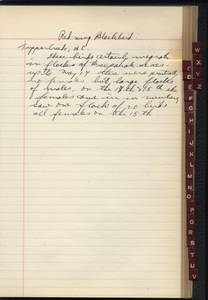 Red wing Blackbird
Topperbush, B.C.
these birds certainly migrate
in flocks of the sexes
up to May 14 there were
no females but large flocks
of males, on the 14th & 15th the
females came in in numbers
saw one flock of 20 birds
all females on the 15th
W
X
Y
Z
C
D
E
F
G
H
I
J
K
L
M
N
O
P
Q
R
S
T
U
V